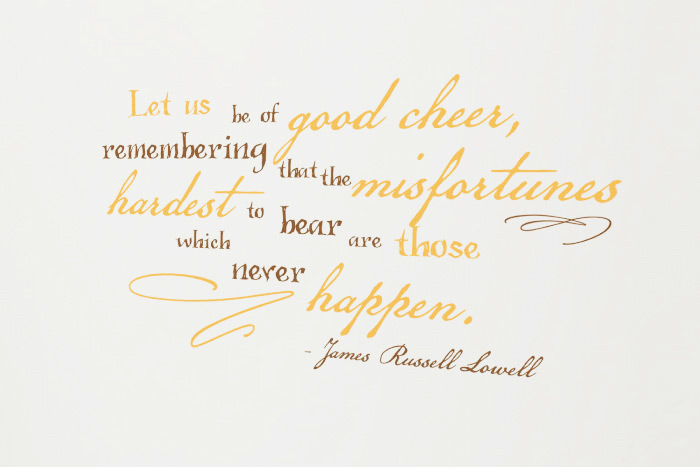 Let us be of good cheer,
remembering that the misfortunes
hardest to bear are those
which never happen.
- James Russell Lowell